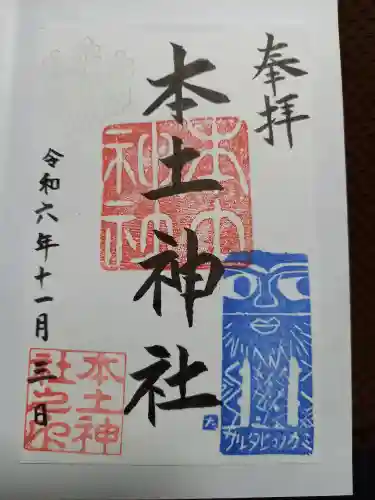 奉拝
本土神社
令和六年十一月三日
本土神社
本土神社之印
サルタヒコノカミ